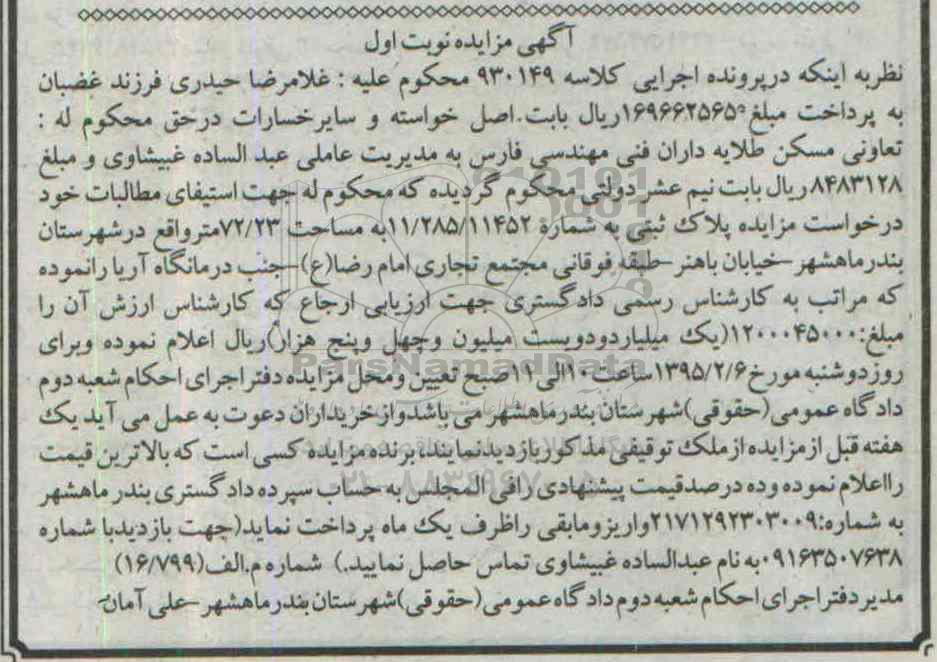 آگهی مزایده نوبت اول
نظربه اینکه درپرونده اجرایی کلاسه ۹۳۰۱۴۹ محکوم علیه : غلامرضا حیدری فرزند غضبان
به پرداخت مبلغ ۱۶۹۶۶۲۵۶۵۰ریال بابت.اصل خواسته و سایرخسارات درحق محکوم له :
تعاونی مسکن طلایه داران فنی مهندسی فارس به مدیریت عاملی عبد الساده غبیشاوی و مبلغ
۸۴۸۳۱۲۸ریال بابت نیم عشر دولتی محکوم گردیده که محکوم له جهت استیفای مطالبات خود
درخواست مزایده پلاک ثبتی به شمارۀ ۱۱/۲۸۵/۱۱۴۵۲به مساحت ۷۲/۲۳مترواقع درشهرستان
بندرماهشهر-خیابان باهنر-طبقه فوقانی مجتمع تجاری امام رضا(ع)-جنب درمانگاه آریا رانموده
که مراتب به کارشناس رسمی دادگستری جهت ارزیابی ارجاع که کارشناس ارزش آن را
مبلغ:۱۲۰۰۰۴۵۰۰۰(یک میلیاردودویست میلیون وچهل وپنج هزار)ریال اعلام نموده وبرای
روزدوشنبه مورخ ۱۳۹۵/۲/۶ساعت۱۰الی۱۱صبح تعیین ومحل مزایده دفتراجرای احکام شعبه دوم
دادگاه عمومی(حقوقی)شهرستان بندرماهشهر می باشدوازخریداران دعوت به عمل می آید یک
هفته قبل ازمزایده ازملک توقیفی مذکوربازدیدنمایند،برنده مزایده کسی است که بالاترین قیمت
رااعلام نموده وده درصدقیمت پیشنهادی رافی المجلس به حساب سپرده دادگستری بندر ماهشهر
به شماره:۲۱۷۱۲۹۲۳۰۳۰۰۹واریزومابقی راظرف یک ماه پرداخت نماید(جهت بازدیدبا شماره
۰۹۱۶۳۵۰۷۶۳۸به نام عبدالساده غبیشاوی تماس حاصل نمایید.) شماره م.الف(۱۶/۷۹۹)
مدیردفتراجرای احکام شعبه دوم دادگاه عمومی(حقوقی)شهرستان بندرماهشهر-علی آمان
ParsNamadData